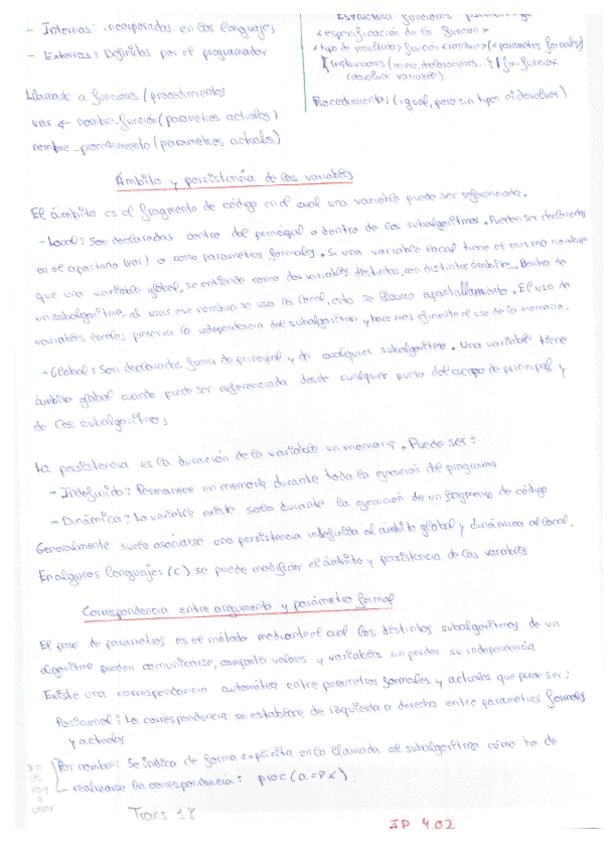 - Internas: incorporadas en los lenguajes
- Externas: Definidas por el programador
Llamada a funciones / procedimientos
var ← nombre_función (parametros actuales)
nombre_procedimiento (parametros actuales)
Estructura funciones
<especificación de la función>
<tipo de resultado> función <nombre> (<parametros formales>)
Instrucciones (inicio, declaraciones...) fin_función
(devolver variable)
Procedimientos (igual, pero sin tipos ni devolver)
Ámbito y persistencia de las variables
El ámbito es el fragmento de código en el cual una variable puede ser referenciada.
- Local: Son declaradas dentro del principal o dentro de los subalgoritmos. Pueden ser declaradas
en el apartado (var) o como parametros formales. Si una variable local tiene el mismo nombre
que una variable global, se entiende como dos variables distintas, con distintos ámbitos. Dentro de
un subalgoritmo, al usar ese nombre se usa la local, esto se llama apantallamiento. El uso de
variables locales preserva la independencia del subalgoritmo y hace mas eficiente el uso de la memoria.
- Global: Son declaradas fuera de principal y de cualquier subalgoritmo. Una variable tiene
ámbito global cuando puede ser referenciada desde cualquier punto del cuerpo de principal y
de los subalgoritmos
La persistencia es la duración de la variable en memoria. Puede ser:
- Indefinida: Permanece en memoria durante toda la ejecución del programa
- Dinámica: La variable existe solo durante la ejecución de un fragmento de código
Generalmente suele asociarse una persistencia indefinida al ámbito global y dinámica al local.
En algunos lenguajes (C) se puede modificar el ámbito y persistencia de las variables
Correspondencia entre argumento y parámetro formal
El paso de parametros es el método mediante el cual los distintos subalgoritmos de un
algoritmo pueden comunicarse, compartir valores y variables sin perder su independencia
Existe una correspondencia automática entre parametros formales y actuales que puede ser:
Posicional: La correspondencia se establece de izquiesta a derecha entre parametros formales
y actuales
Por nombre: Se indica de forma explícita en la llamada al subalgoritmo cómo ha de
realizarse la correspondencia: proc (a => x).
no
lo
voy
a
usar
Trans 18
IP 4.02